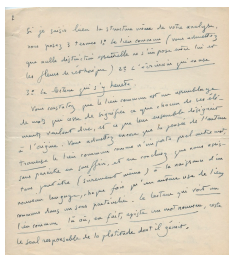 Si je saisis bien la structure même de votre analyse,
vous posez 3 termes : 1° le lieu commun (vous admettez
que nulle distinction essentielle ne s'impose entre lui et
les fleurs de rhétorique) 2°
3° la lecture qui s'y heurte.
Vous constatez que le lieu commun est un assemblage
de mots qui use de signifier ce que chacun de ces élé-
ments veulent dire, et ce que leur ensemble désignait
à l'origine. Vous admettez encore que la pensée de l'auteur
traverse le lieu commun comme n'importe quel autre mot,
sans prendre un souffle, et en
peut-être (sûrement même) à la naissance d'un
nouveau langage, chaque fois qu'un auteur use de lieu
commun dans un sens particulier. Le lecteur qui voit un
lieu commun là où, en fait, existe un mot nouveau, reste
le seul responsable de la platitude dont il gémit.